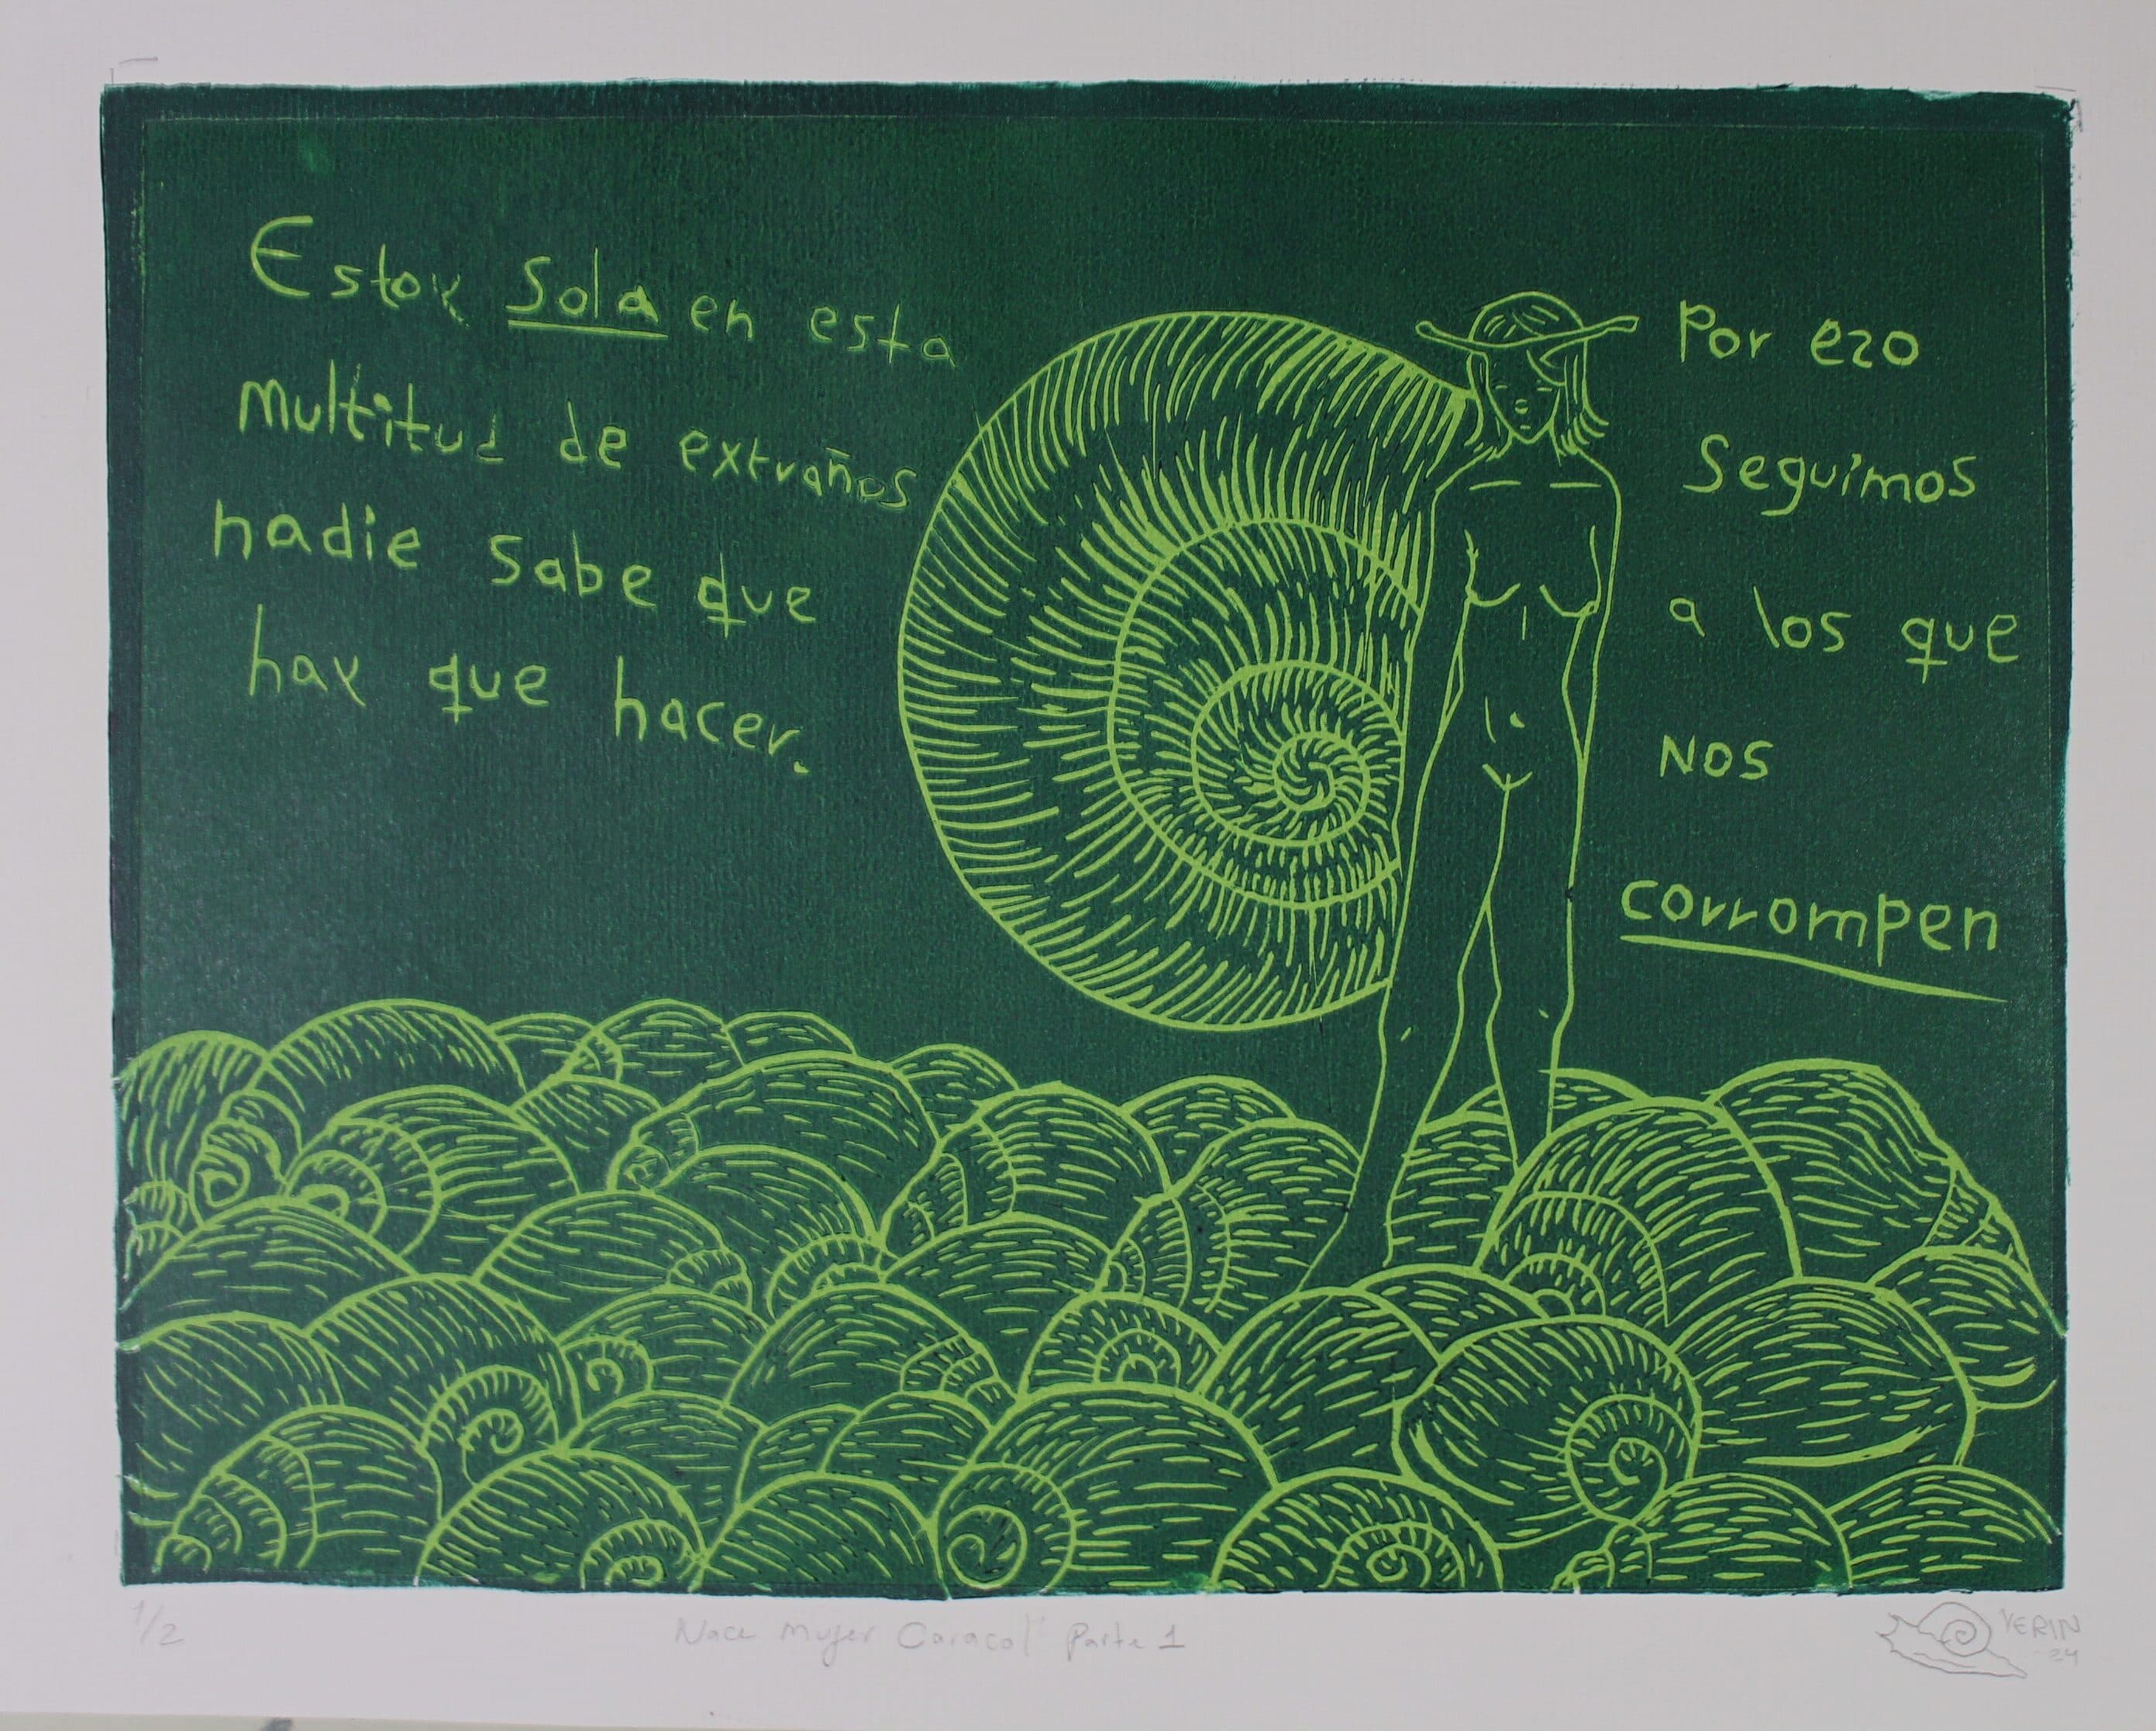 Estoy Sola en esta
multitud de extraños
nadie sabe que
hay que hacer.
Por ezo
Seguimos
a los que
NOS
corrompen
1/2
Nace Mujer Caracol Parte 1
VERIN
24